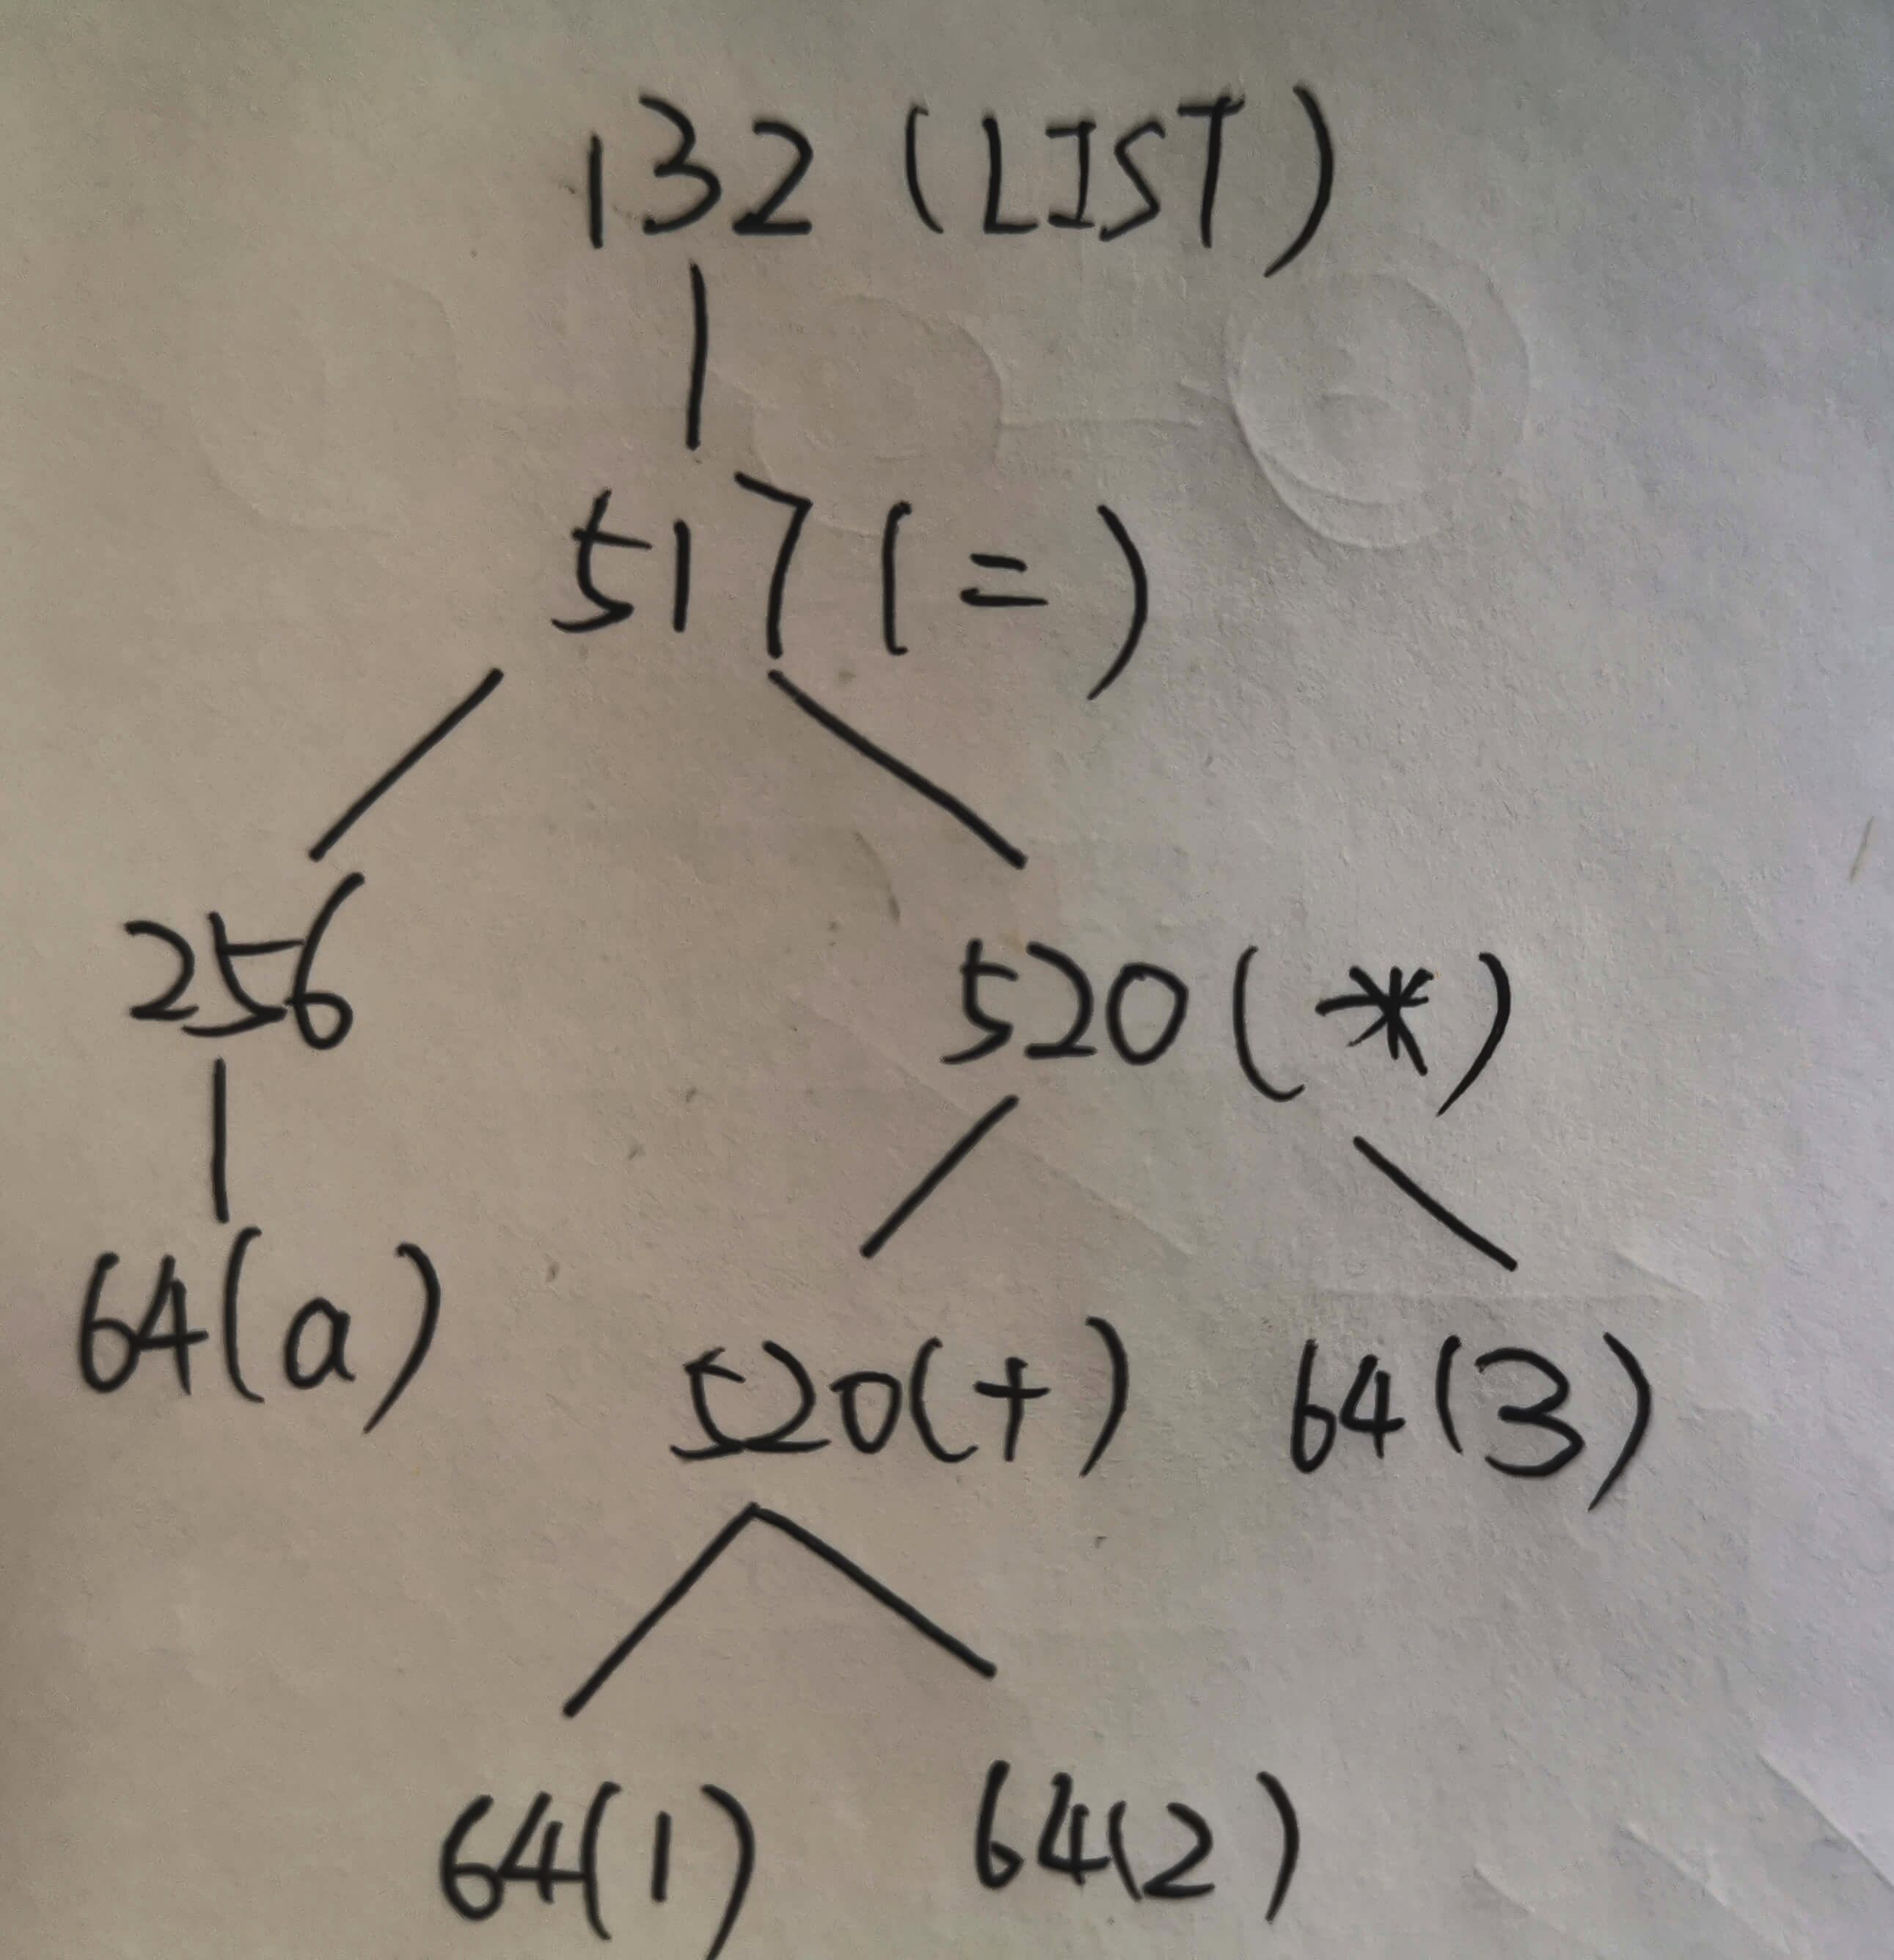 132 (LIST)
517 (=)
256
520 (*)
64(a)
520(+)
64(3)
64(1)
64(2)